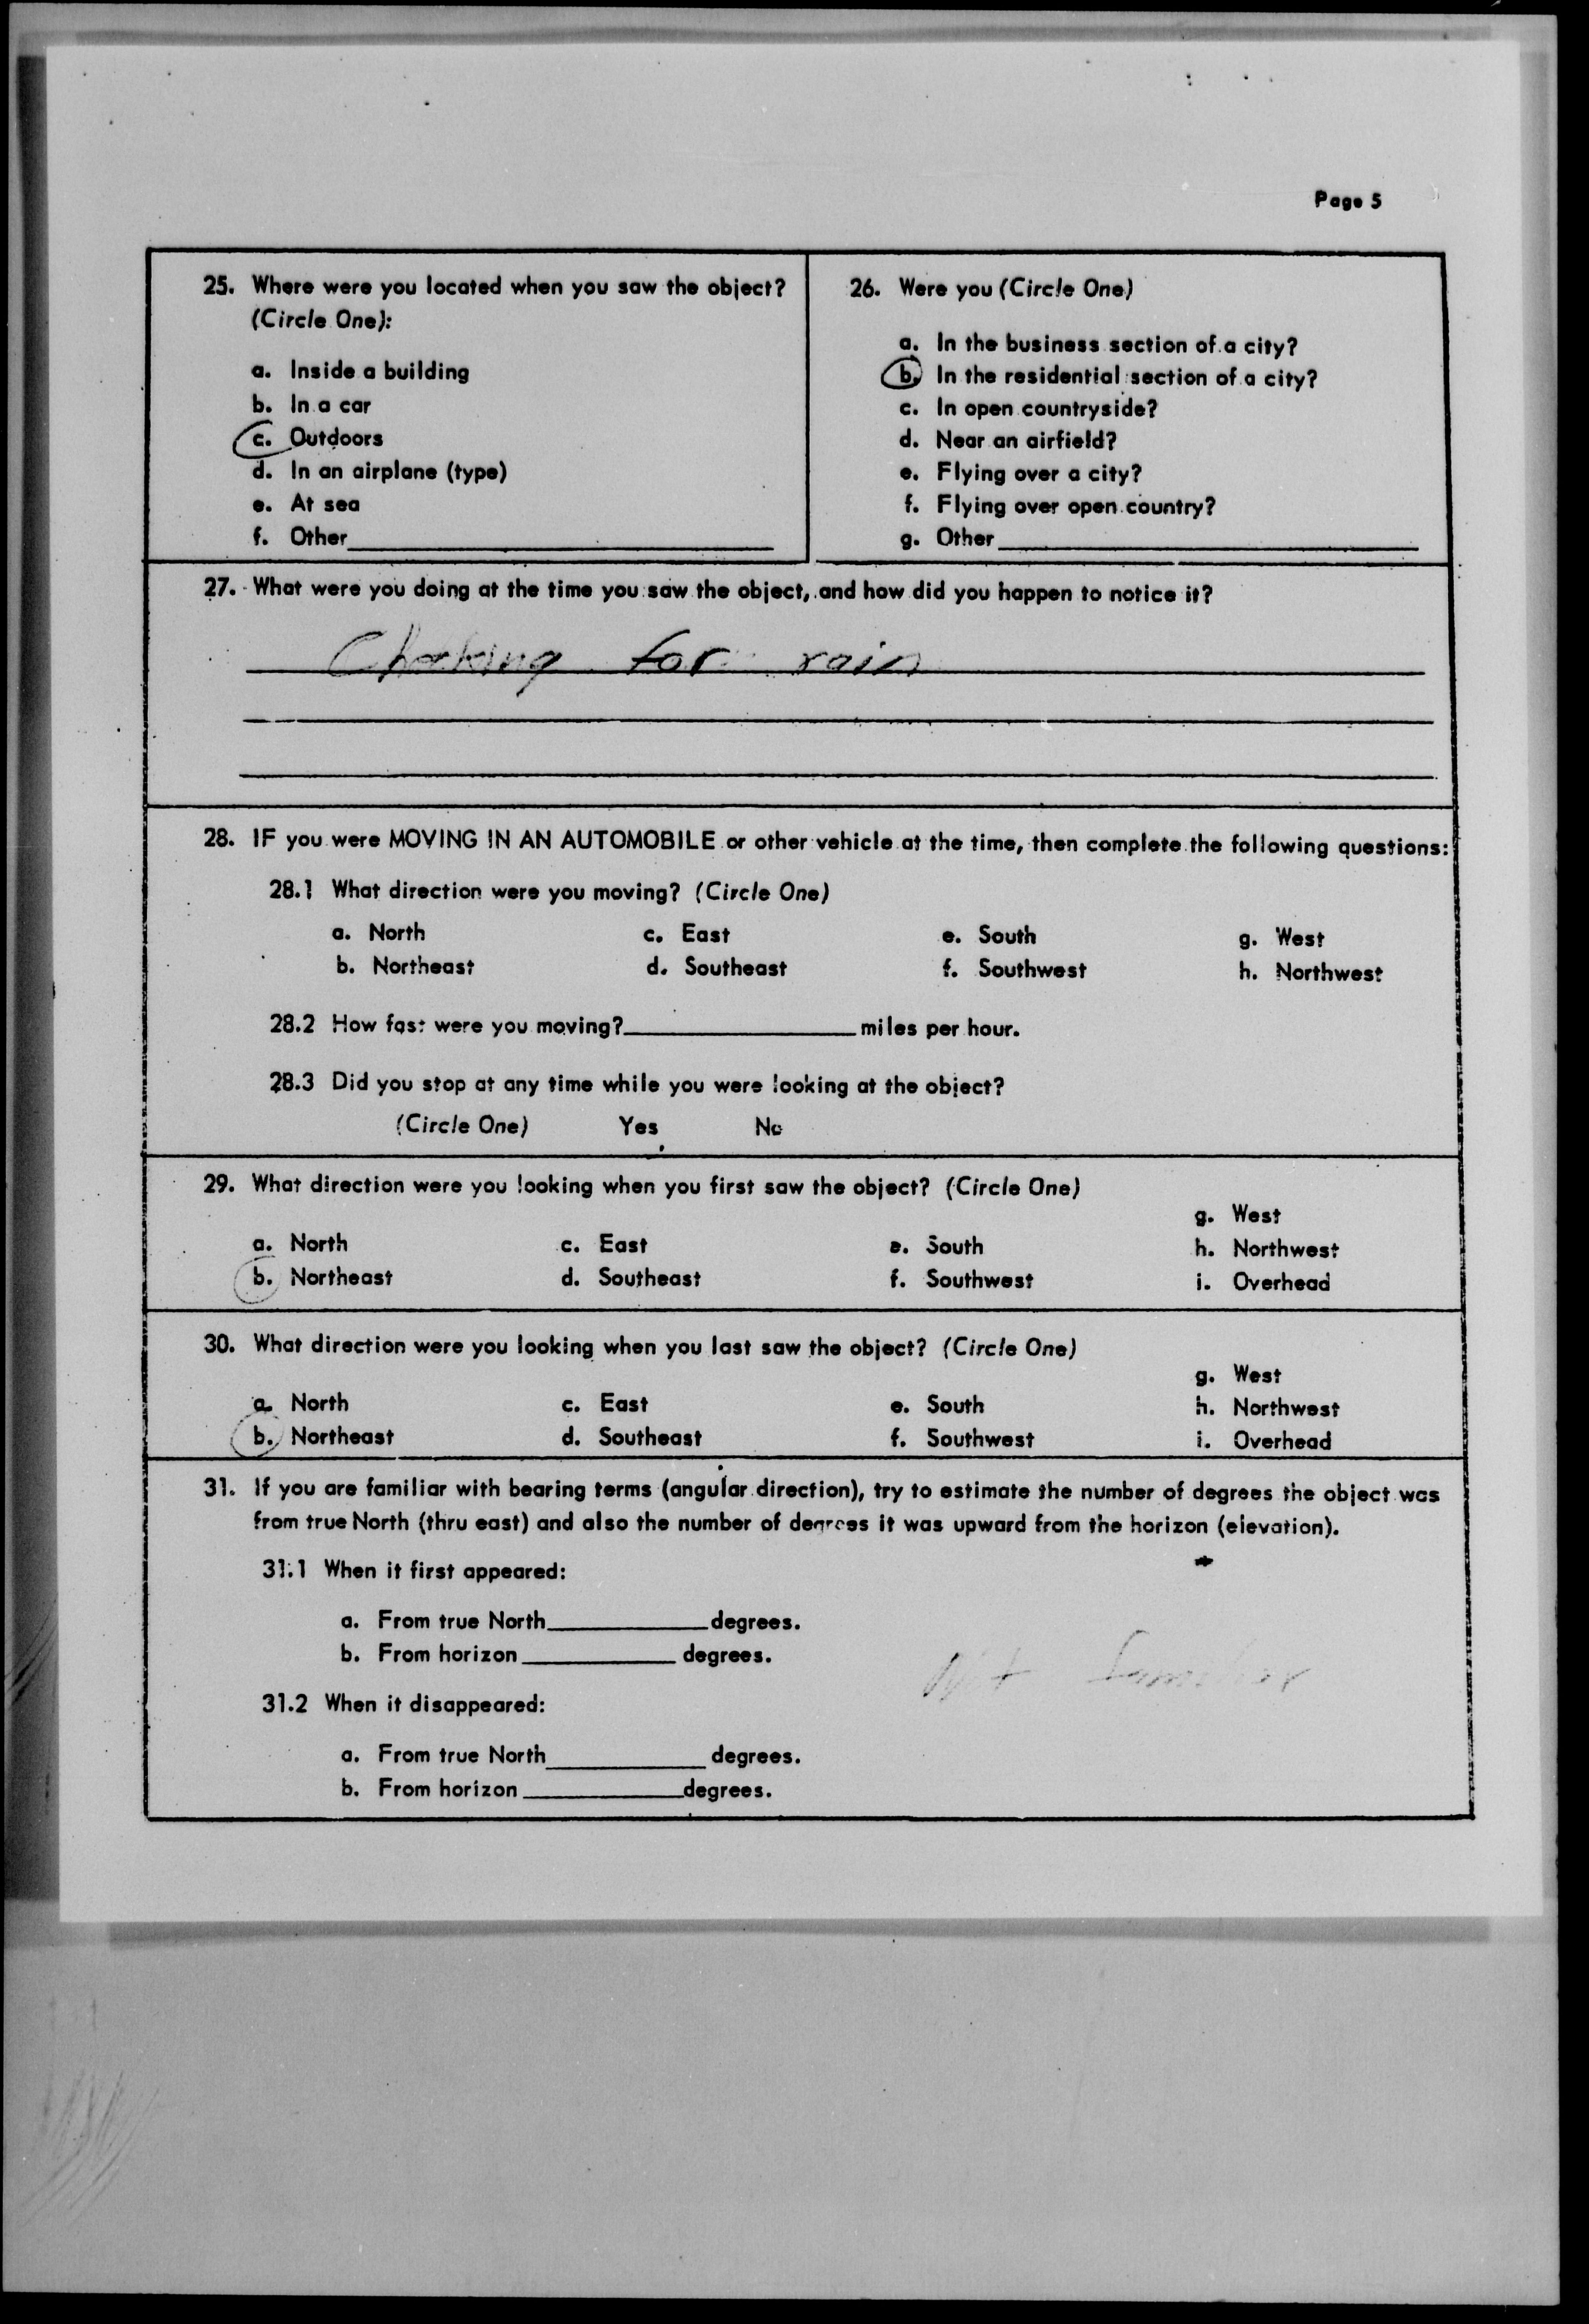 Page 5
25. Where were you located when you saw the object?
(Circle One):
a. Inside a building
b. In a car
c. Outdoors
d. In an airplane (type)
e. At sea
f. Other
26. Were you (Circle One)
a. In the business section of a city?
b. In the residential section of a city?
c. In open countryside?
d. Near an airfield?
e. Flying over a city?
f. Flying over open country?
g. Other
27. What were you doing at the time you saw the object, and how did you happen to notice it?
Checking for rain
28. IF you were MOVING IN AN AUTOMOBILE or other vehicle at the time, then complete the following questions:
28.1 What direction were you moving? (Circle One)
a. North c. East e. South g. West
b. Northeast d. Southeast f. Southwest h. Northwest
28.2 How fast were you moving? miles per hour.
28.3 Did you stop at any time while you were looking at the object?
(Circle One) Yes No
29. What direction were you looking when you first saw the object? (Circle One)
g. West
a. North c. East e. South h. Northwest
b. Northeast d. Southeast f. Southwest i. Overhead
30. What direction were you looking when you last saw the object? (Circle One)
g. West
a. North c. East e. South h. Northwest
b. Northeast d. Southeast f. Southwest i. Overhead
31. If you are familiar with bearing terms (angular direction), try to estimate the number of degrees the object was
from true North (thru east) and also the number of degrees it was upward from the horizon (elevation).
31.1 When it first appeared:
a. From true North degrees.
b. From horizon degrees.
Not familiar
31.2 When it disappeared:
a. From true North degrees.
b. From horizon degrees.